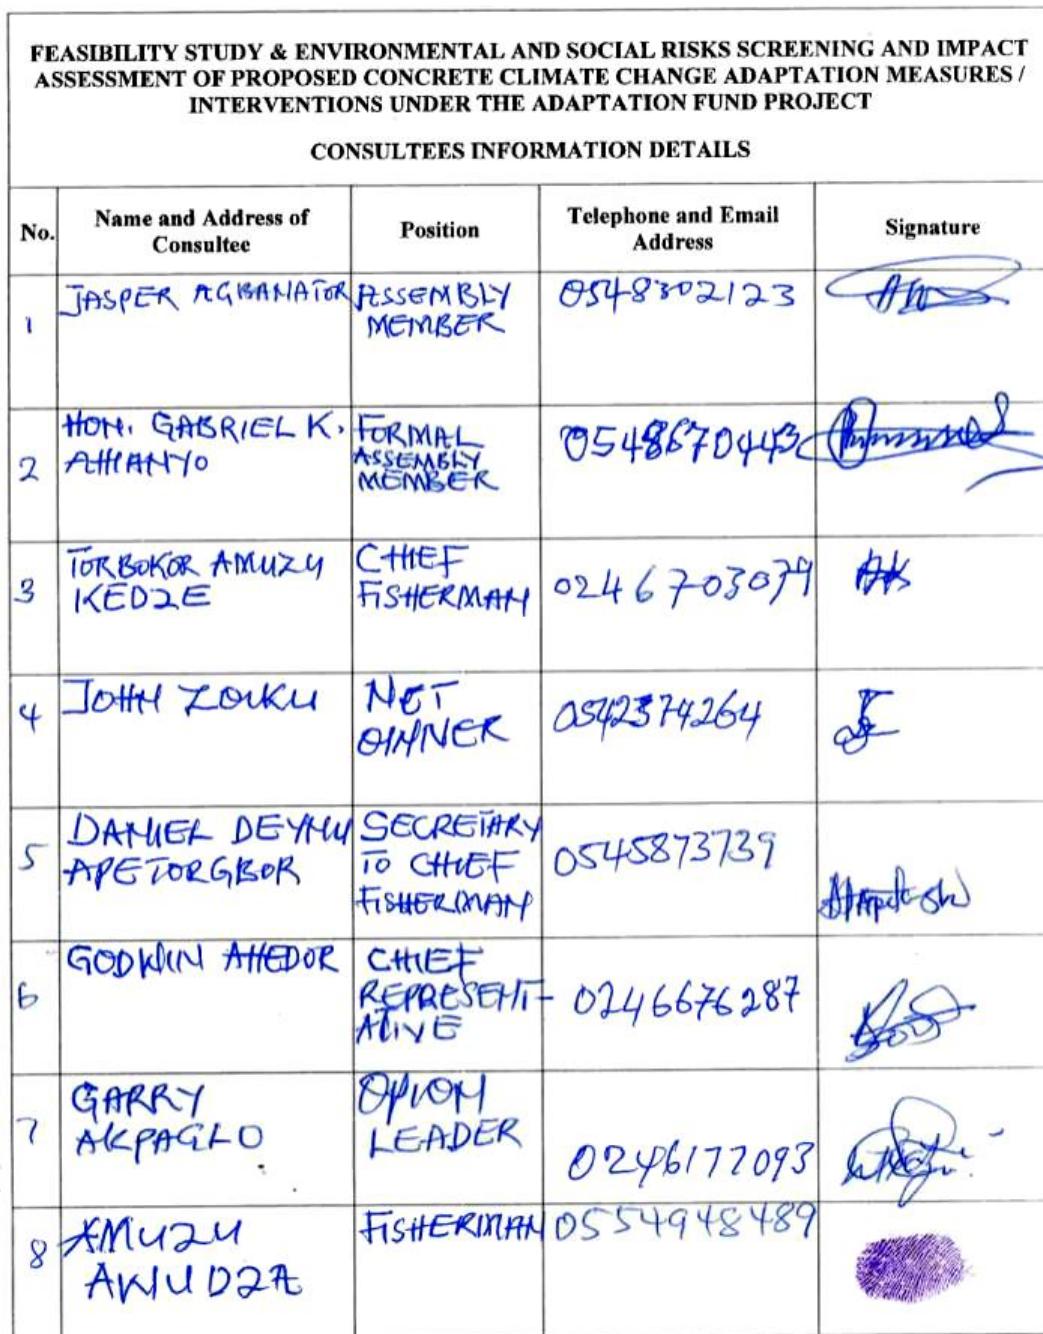 FEASIBILITY STUDY & ENVIRONMENTAL AND SOCIAL RISKS SCREENING AND IMPACT
ASSESSMENT OF PROPOSED CONCRETE CLIMATE CHANGE ADAPTATION MEASURES /
INTERVENTIONS UNDER THE ADAPTATION FUND PROJECT
CONSULTEES INFORMATION DETAILS
No. Name and Address of Consultee Position Telephone and Email Address Signature
1 JASPER AGBANATOR ASSEMBLY MEMBER 0548302123
2 HON. GABRIEL K. AHIANYO FORMAL ASSEMBLY MEMBER 0548670443
3 TORBOKOR AMUZU KEDZE CHIEF FISHERMAN 0246703079
4 JOHN ZOIKU NET OWNER 0542374264
5 DANIEL DEYNU APETORGBOR SECRETARY TO CHIEF FISHERMAN 0545873739
6 GODWIN AHEDOR CHIEF REPRESENT-ATIVE 0246676287
7 GARRY AKPAGLO OPIION LEADER 0246177093
8 AMUZU AWUDZA FISHERMAN 0554948489